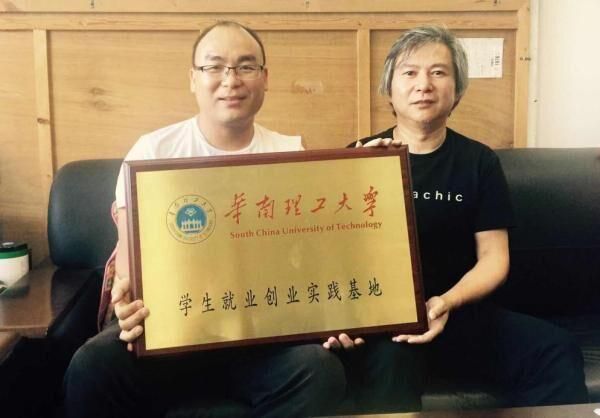 華南理工大学
South China University of Technology
学生就业创业实践基地
achic